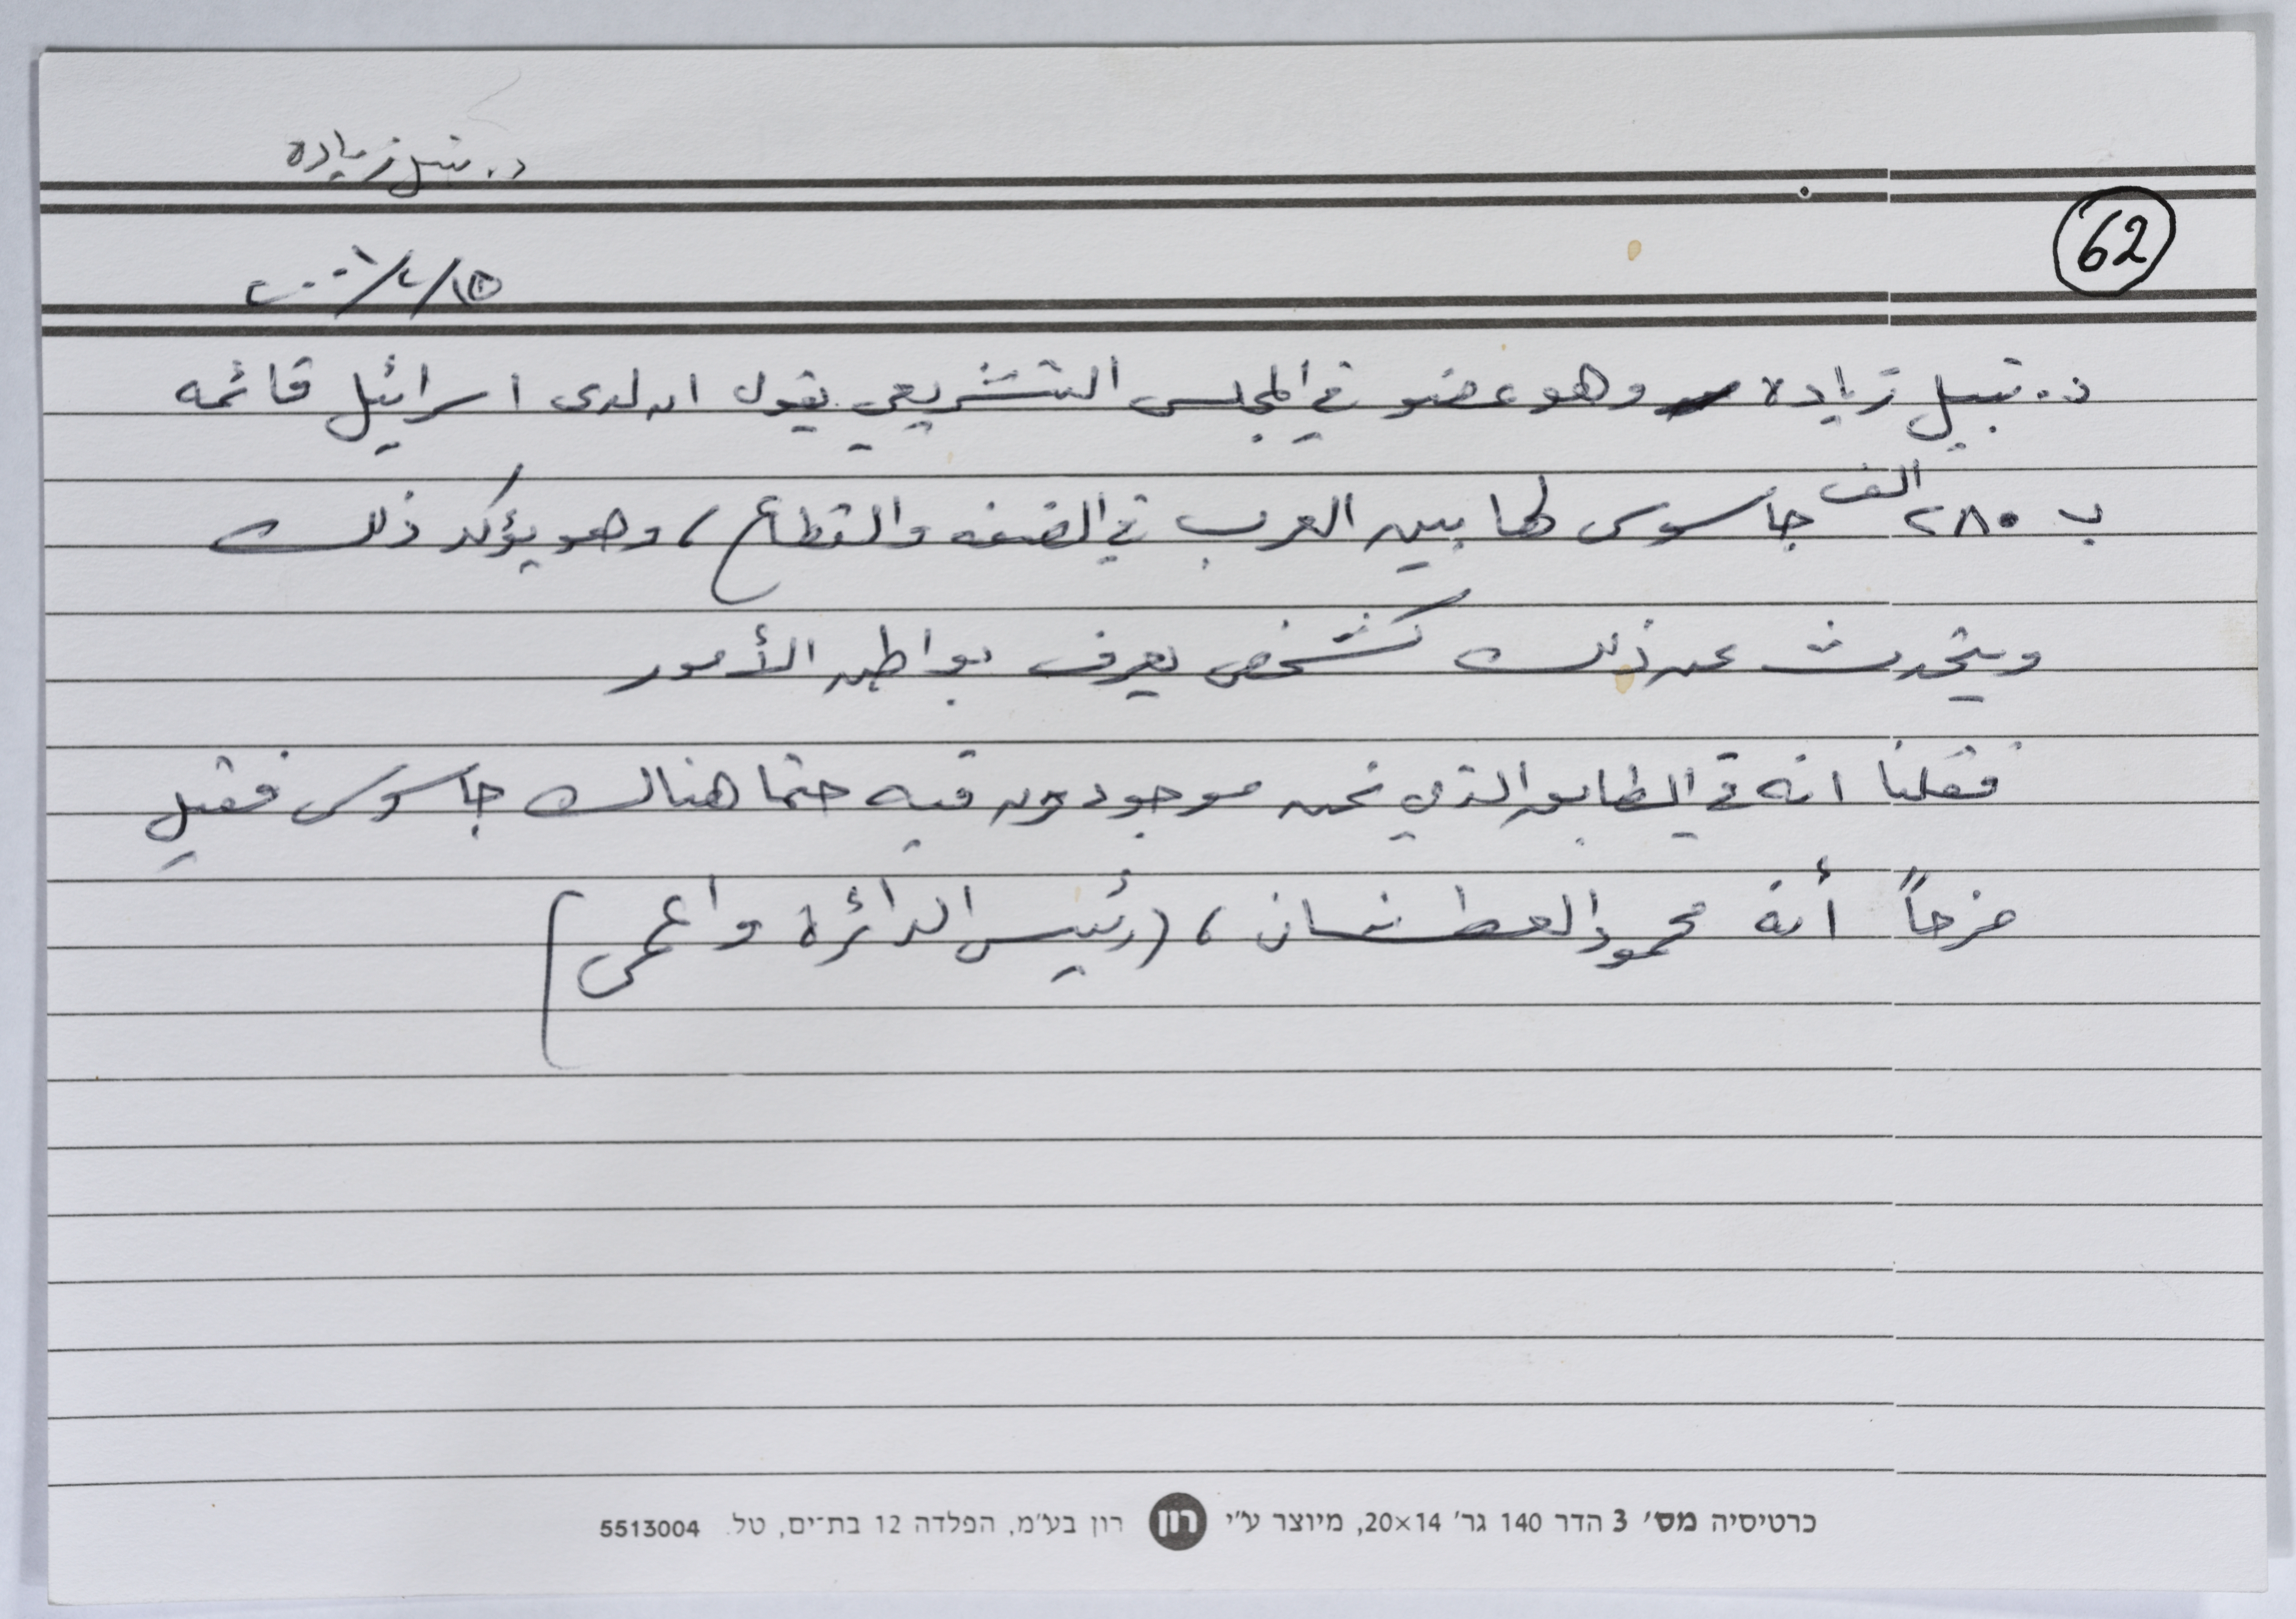 د. نبيل زياده
62
٢٠٠١/٢/١٥
د. نبيل زياده وهو عضو في المجلس التشريعي يقول ان لدى اسرائيل قائمه
ب ٢٨٠ الف جاسوس لها بين العرب في الضفه والقطاع، وهو يؤكد ذلك
ويتحدث عن ذلك كشخص يعرف بواطن الأمور
فقلنا انه في الطابق الذي نحن موجودون فيه حتما هنالك جاسوس فقيل
مزحاً أنه محمود العطشان، (رئيس الدائرة واعمى)
כרטיסיה מס׳ 3 הדר 140 גר׳ 20×14, מיוצר ע״י רון רון בע״מ, הפלדה 12 בת־ים, טל. 5513004